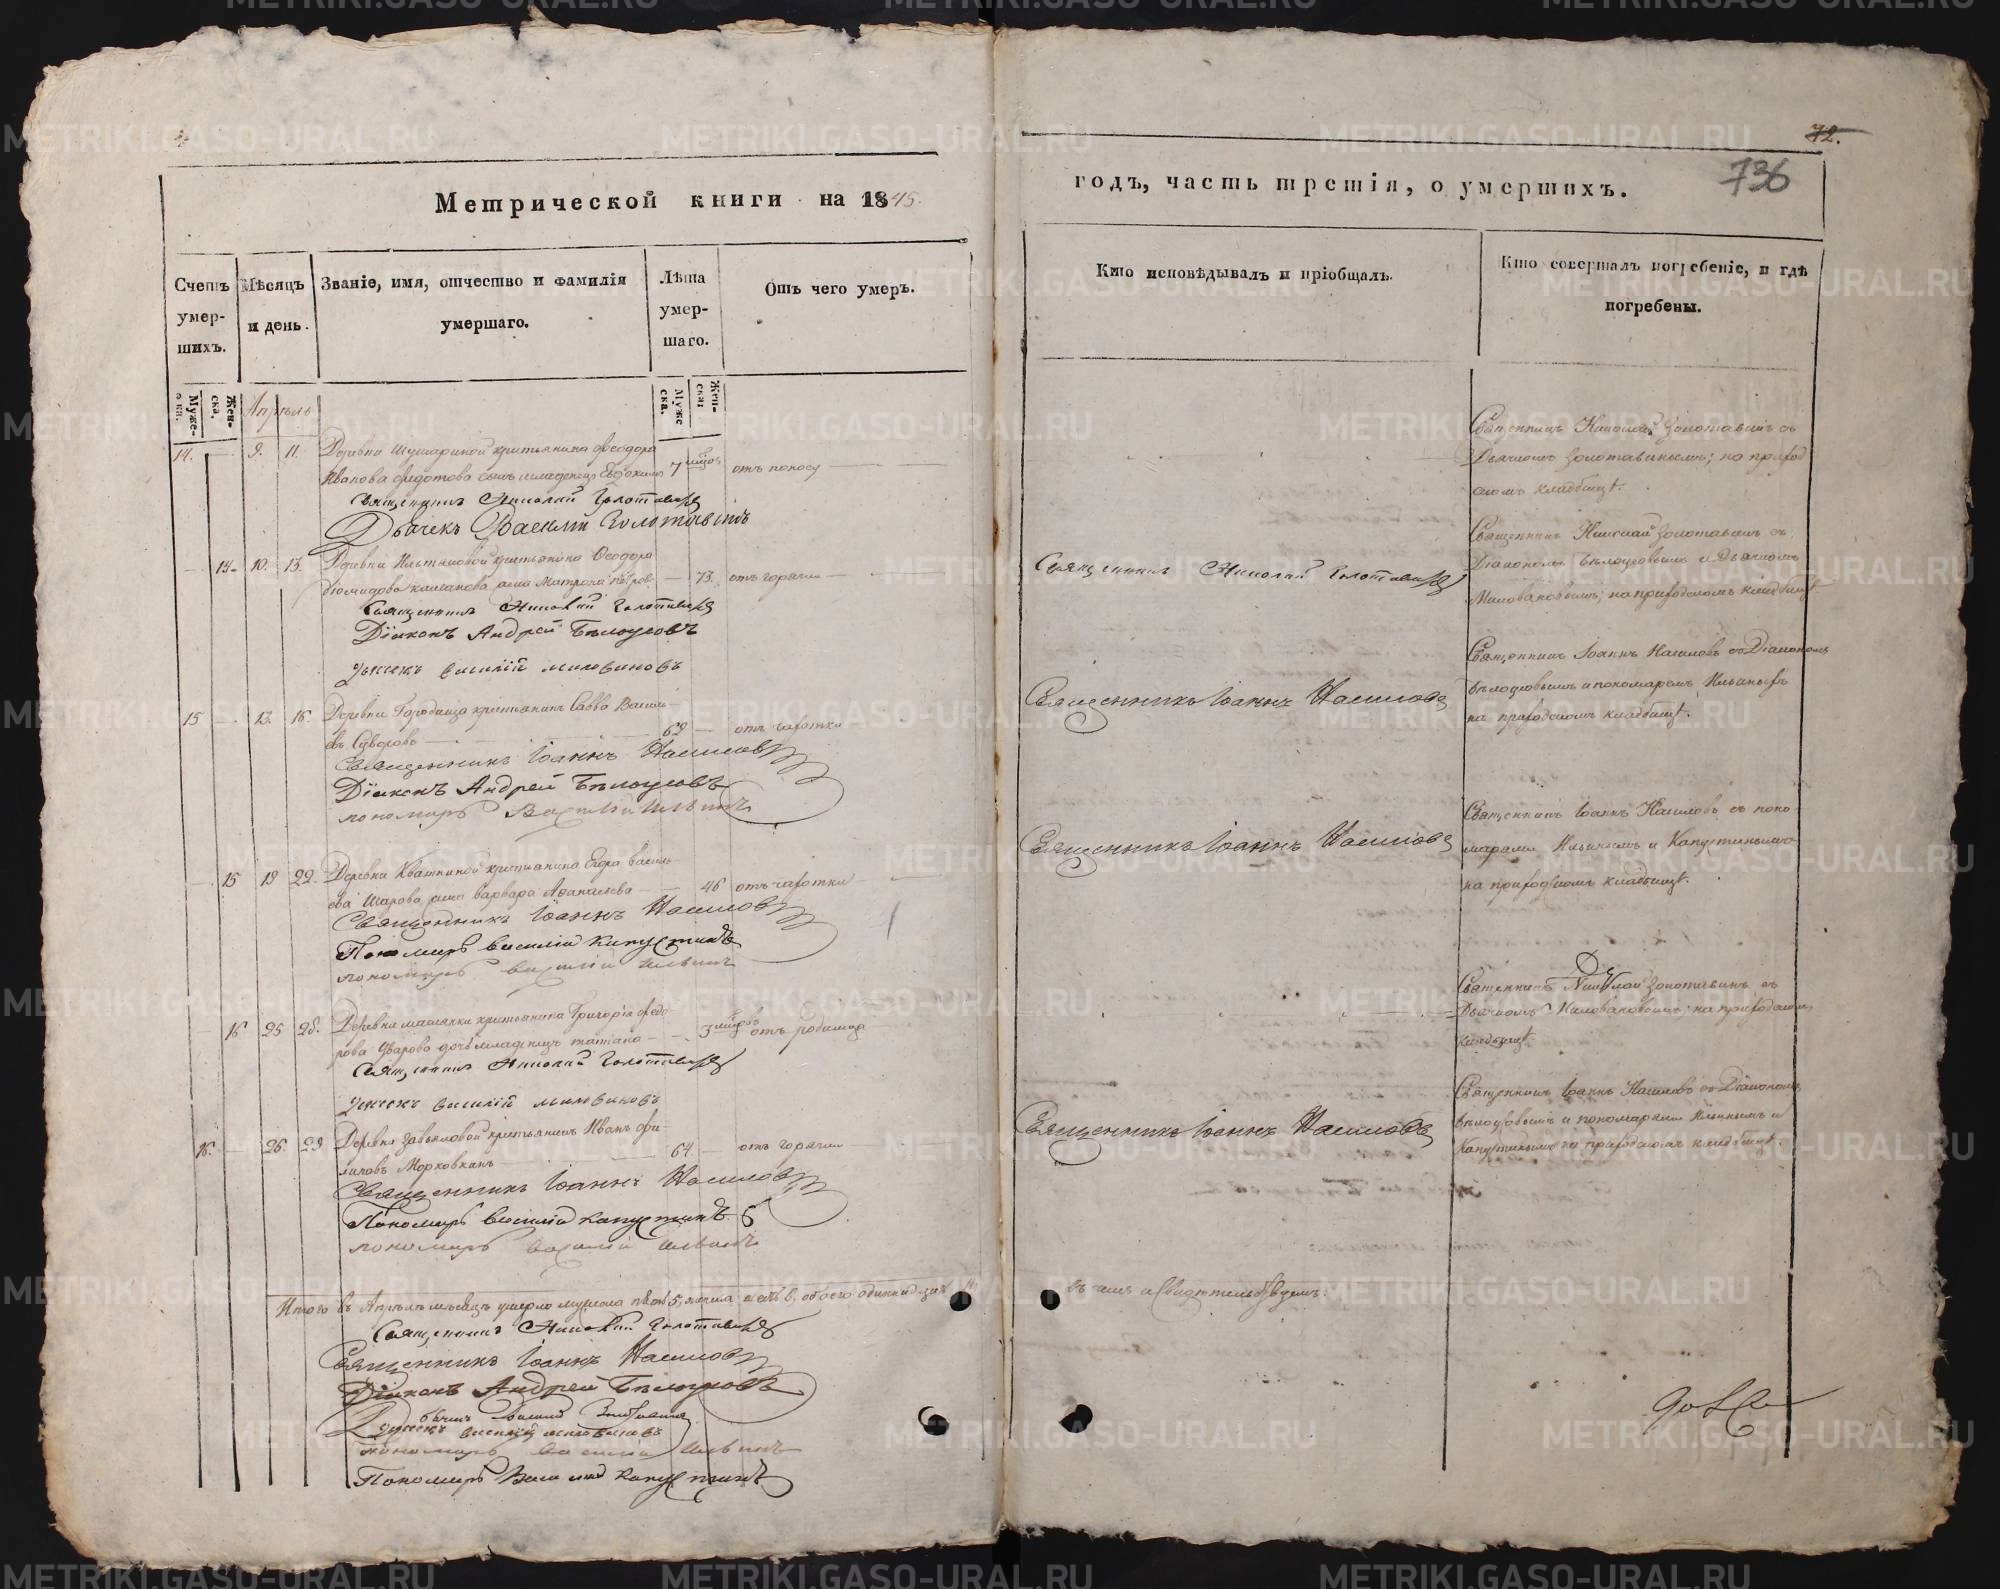 Метрической книги на 1845.
Счетъ умер-шихъ.
Мѣсяцъ и день.
Званіе, имя, отчество и фамилія умершаго.
Лѣта умер-шаго.
Отъ чего умеръ.
Муже-ска.
Жен-ска.
Муже ска.
Жен-ска:
Апрѣль
14. 9. 11. Деревни Шушариной крестьянина Феодора
Иванова Федотова сынъ младенецъ Евдокимъ 7 мѣсяц. отъ поносу
Священникъ Николай Золотавинъ
Дьячекъ Василій Золотавинъ
14. 10. 13. Деревни крестьянина Феодора
Діомидова жена Матрона Петров. 73. отъ горячки
Священникъ Николай Золотавинъ
Діаконъ Андрей Бѣлоусовъ
Дьячекъ Василій Миловановъ
15 13. 16. Деревни Городища крестьянинъ Савва Василь-
евъ Суворовъ 69 отъ чахотки
Священникъ Іоаннъ Насиловъ
Діаконъ Андрей Бѣлоусовъ
пономарь Василій Ильинъ
15 19 22. Деревни Квашниной крестьянина Егора Василь-
ева Шарова жена Варвара Афанасьева 46 отъ чахотки
Священникъ Іоаннъ Насиловъ
Пономарь Василій Капустинъ
пономарь Василій Ильинъ
16 25 28. Деревни крестьянина Григорія Федо-
рова Уварова дочь младенецъ Татіана 3 отъ родимца
Священникъ Николай Золотавинъ
Дьячекъ Василій Миловановъ
16. 26. 29 Деревни Завьяловой крестьянинъ Иванъ Фи-
липовъ Морковкинъ 64 отъ горячки
Священникъ Іоаннъ Насиловъ
Пономарь Василій Капустинъ
пономарь Василій Ильинъ
Итого въ Апрѣлѣ мѣсяцѣ умерло мужеска пола 5, женска 6, обоего одиннадцать 11.
Священникъ Николай Золотавинъ
Священникъ Іоаннъ Насиловъ
Діаконъ Андрей Бѣлоусовъ
Дьячекъ Василій Золотавинъ
Дьячекъ Василій Миловановъ
пономарь Василій Ильинъ
Пономарь Василій Капустинъ
72.
736
годъ, часть третія, о умершихъ.
Кто исповѣдывалъ и пріобщалъ.
Кто совершалъ погребеніе, и гдѣ погребены.
Священникъ Николай Золотавинъ съ
Дьячкомъ Золотавинымъ; на приход
скомъ кладбищѣ.
Священникъ Николай Золотавинъ
Священникъ Николай Золотавинъ съ
Діакономъ Бѣлоусовымъ и Дьячкомъ
Миловановымъ; на приходскомъ кладбищѣ
Священникъ Іоаннъ Насиловъ
Священникъ Іоаннъ Насиловъ съ Діакономъ
Бѣлоусовымъ и пономаремъ Ильинымъ
на приходскомъ кладбищѣ.
Священникъ Іоаннъ Насиловъ
Священникъ Іоаннъ Насиловъ съ поно-
марями Ильинымъ и Капустинымъ
на приходскомъ кладбищѣ.
Священникъ Николай Золотавинъ съ
Дьячкомъ Миловановымъ; на приходскомъ
кладбищѣ
Священникъ Іоаннъ Насиловъ
Священникъ Іоаннъ Насиловъ съ Діакономъ
Бѣлоусовымъ и пономарями Ильинымъ и
Капустинымъ на приходскомъ кладбищѣ.
въ чемъ и свидѣтельствуемъ:
METRIKI.GASO-URAL.RU